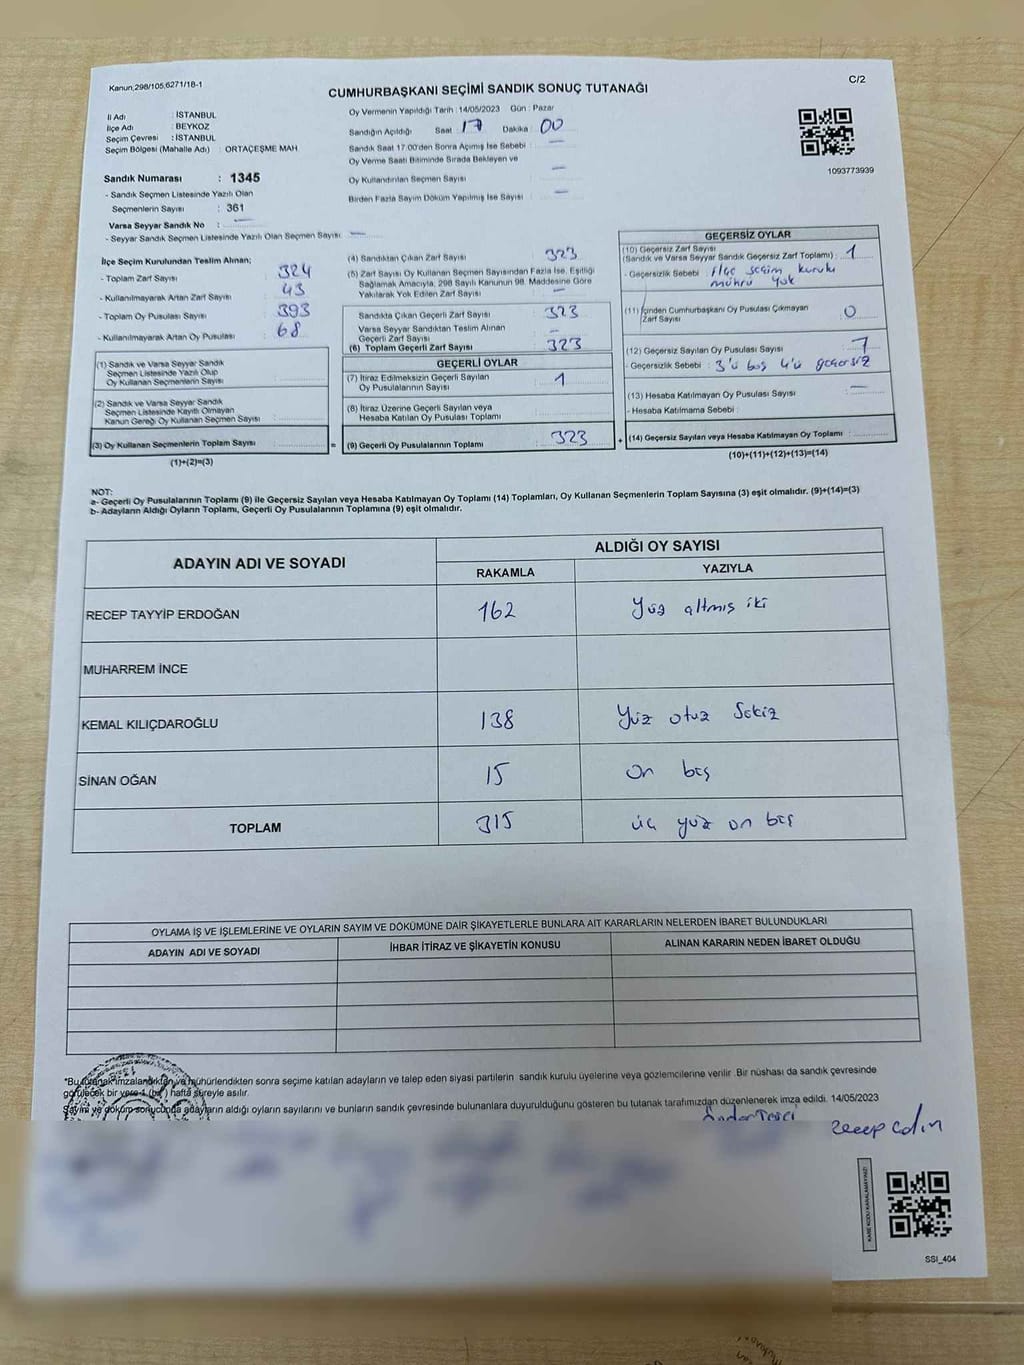 Kanun,298/105,6271/18-1
C/2
CUMHURBAŞKANI SEÇİMİ SANDIK SONUÇ TUTANAĞI
İl Adı : İSTANBUL
İlçe Adı : BEYKOZ
Seçim Çevresi : İSTANBUL
Seçim Bölgesi (Mahalle Adı) : ORTAÇEŞME MAH
Sandık Numarası : 1345
- Sandık Seçmen Listesinde Yazılı Olan
Seçmenlerin Sayısı : 361
Varsa Seyyar Sandık No : —
- Seyyar Sandık Seçmen Listesinde Yazılı Olan Seçmen Sayısı : —
Oy Vermenin Yapıldığı Tarih : 14/05/2023 Gün : Pazar
Sandığın Açıldığı Saat : 17 Dakika : 00
Sandık Saat 17.00'den Sonra Açımış İse Sebebi : —
Oy Verme Saati Bitiminde Sırada Bekleyen ve
Oy Kullandırılan Seçmen Sayısı : —
Birden Fazla Sayım Döküm Yapılmış İse Sayısı : —
1093773939
İlçe Seçim Kurulundan Teslim Alınan;
- Toplam Zarf Sayısı : 324
- Kullanılmayarak Artan Zarf Sayısı : 43
- Toplam Oy Pusulası Sayısı : 393
- Kullanılmayarak Artan Oy Pusulası : 68
(1) Sandık ve Varsa Seyyar Sandık
Seçmen Listesinde Yazılı Olup
Oy Kullanan Seçmenlerin Sayısı :
(2) Sandık ve Varsa Seyyar Sandık
Seçmen Listesinde Kayıtlı Olmayan
Kanun Gereği Oy Kullanan Seçmen Sayısı :
(3) Oy Kullanan Seçmenlerin Toplam Sayısı : =
(1)+(2)=(3)
(4) Sandıktan Çıkan Zarf Sayısı : 323
(5) Zarf Sayısı Oy Kullanan Seçmen Sayısından Fazla İse, Eşitliği
Sağlamak Amacıyla, 298 Sayılı Kanunun 98. Maddesine Göre
Yakılarak Yok Edilen Zarf Sayısı : —
Sandıkta Çıkan Geçerli Zarf Sayısı : 323
Varsa Seyyar Sandıktan Teslim Alınan
Geçerli Zarf Sayısı : —
(6) Toplam Geçerli Zarf Sayısı : 323
GEÇERLİ OYLAR
(7) İtiraz Edilmeksizin Geçerli Sayılan
Oy Pusulalarının Sayısı : 1
(8) İtiraz Üzerine Geçerli Sayılan veya
Hesaba Katılan Oy Pusulası Toplamı :
(9) Geçerli Oy Pusulalarının Toplamı : 323 +
GEÇERSİZ OYLAR
(10) Geçersiz Zarf Sayısı
(Sandık ve Varsa Seyyar Sandık Geçersiz Zarf Toplamı) : 1
- Geçersizlik Sebebi : ilçe seçim kurulu
mührü yok
(11) İçinden Cumhurbaşkanı Oy Pusulası Çıkmayan
Zarf Sayısı : 0
(12) Geçersiz Sayılan Oy Pusulası Sayısı : 7
- Geçersizlik Sebebi : 3'ü boş 4'ü geçersiz
(13) Hesaba Katılmayan Oy Pusulası Sayısı : —
- Hesaba Katılmama Sebebi :
(14) Geçersiz Sayılan veya Hesaba Katılmayan Oy Toplamı :
(10)+(11)+(12)+(13)=(14)
NOT:
a- Geçerli Oy Pusulalarının Toplamı (9) ile Geçersiz Sayılan veya Hesaba Katılmayan Oy Toplamı (14) Toplamları, Oy Kullanan Seçmenlerin Toplam Sayısına (3) eşit olmalıdır. (9)+(14)=(3)
b- Adayların Aldığı Oyların Toplamı, Geçerli Oy Pusulalarının Toplamına (9) eşit olmalıdır.
ADAYIN ADI VE SOYADI
ALDIĞI OY SAYISI
RAKAMLA YAZIYLA
RECEP TAYYİP ERDOĞAN 162 Yüz altmış iki
MUHARREM İNCE
KEMAL KILIÇDAROĞLU 138 Yüz otuz Sekiz
SİNAN OĞAN 15 On beş
TOPLAM 315 üç yüz on beş
OYLAMA İŞ VE İŞLEMLERİNE VE OYLARIN SAYIM VE DÖKÜMÜNE DAİR ŞİKAYETLERLE BUNLARA AİT KARARLARIN NELERDEN İBARET BULUNDUKLARI
ADAYIN ADI VE SOYADI İHBAR İTİRAZ VE ŞİKAYETİN KONUSU ALINAN KARARIN NEDEN İBARET OLDUĞU
*Bu tutanak imzalandıktan ve mühürlendikten sonra seçime katılan adayların ve talep eden siyasi partilerin sandık kurulu üyelerine veya gözlemcilerine verilir. Bir nüshası da sandık çevresinde
görülecek bir yere 1 (bir) hafta süreyle asılır.
Sayım ve döküm sonucunda adayların aldığı oyların sayılarını ve bunların sandık çevresinde bulunanlara duyurulduğunu gösteren bu tutanak tarafımızdan düzenlenerek imza edildi. 14/05/2023
KARE KODU KARALAMAYINIZ!
SSİ_404